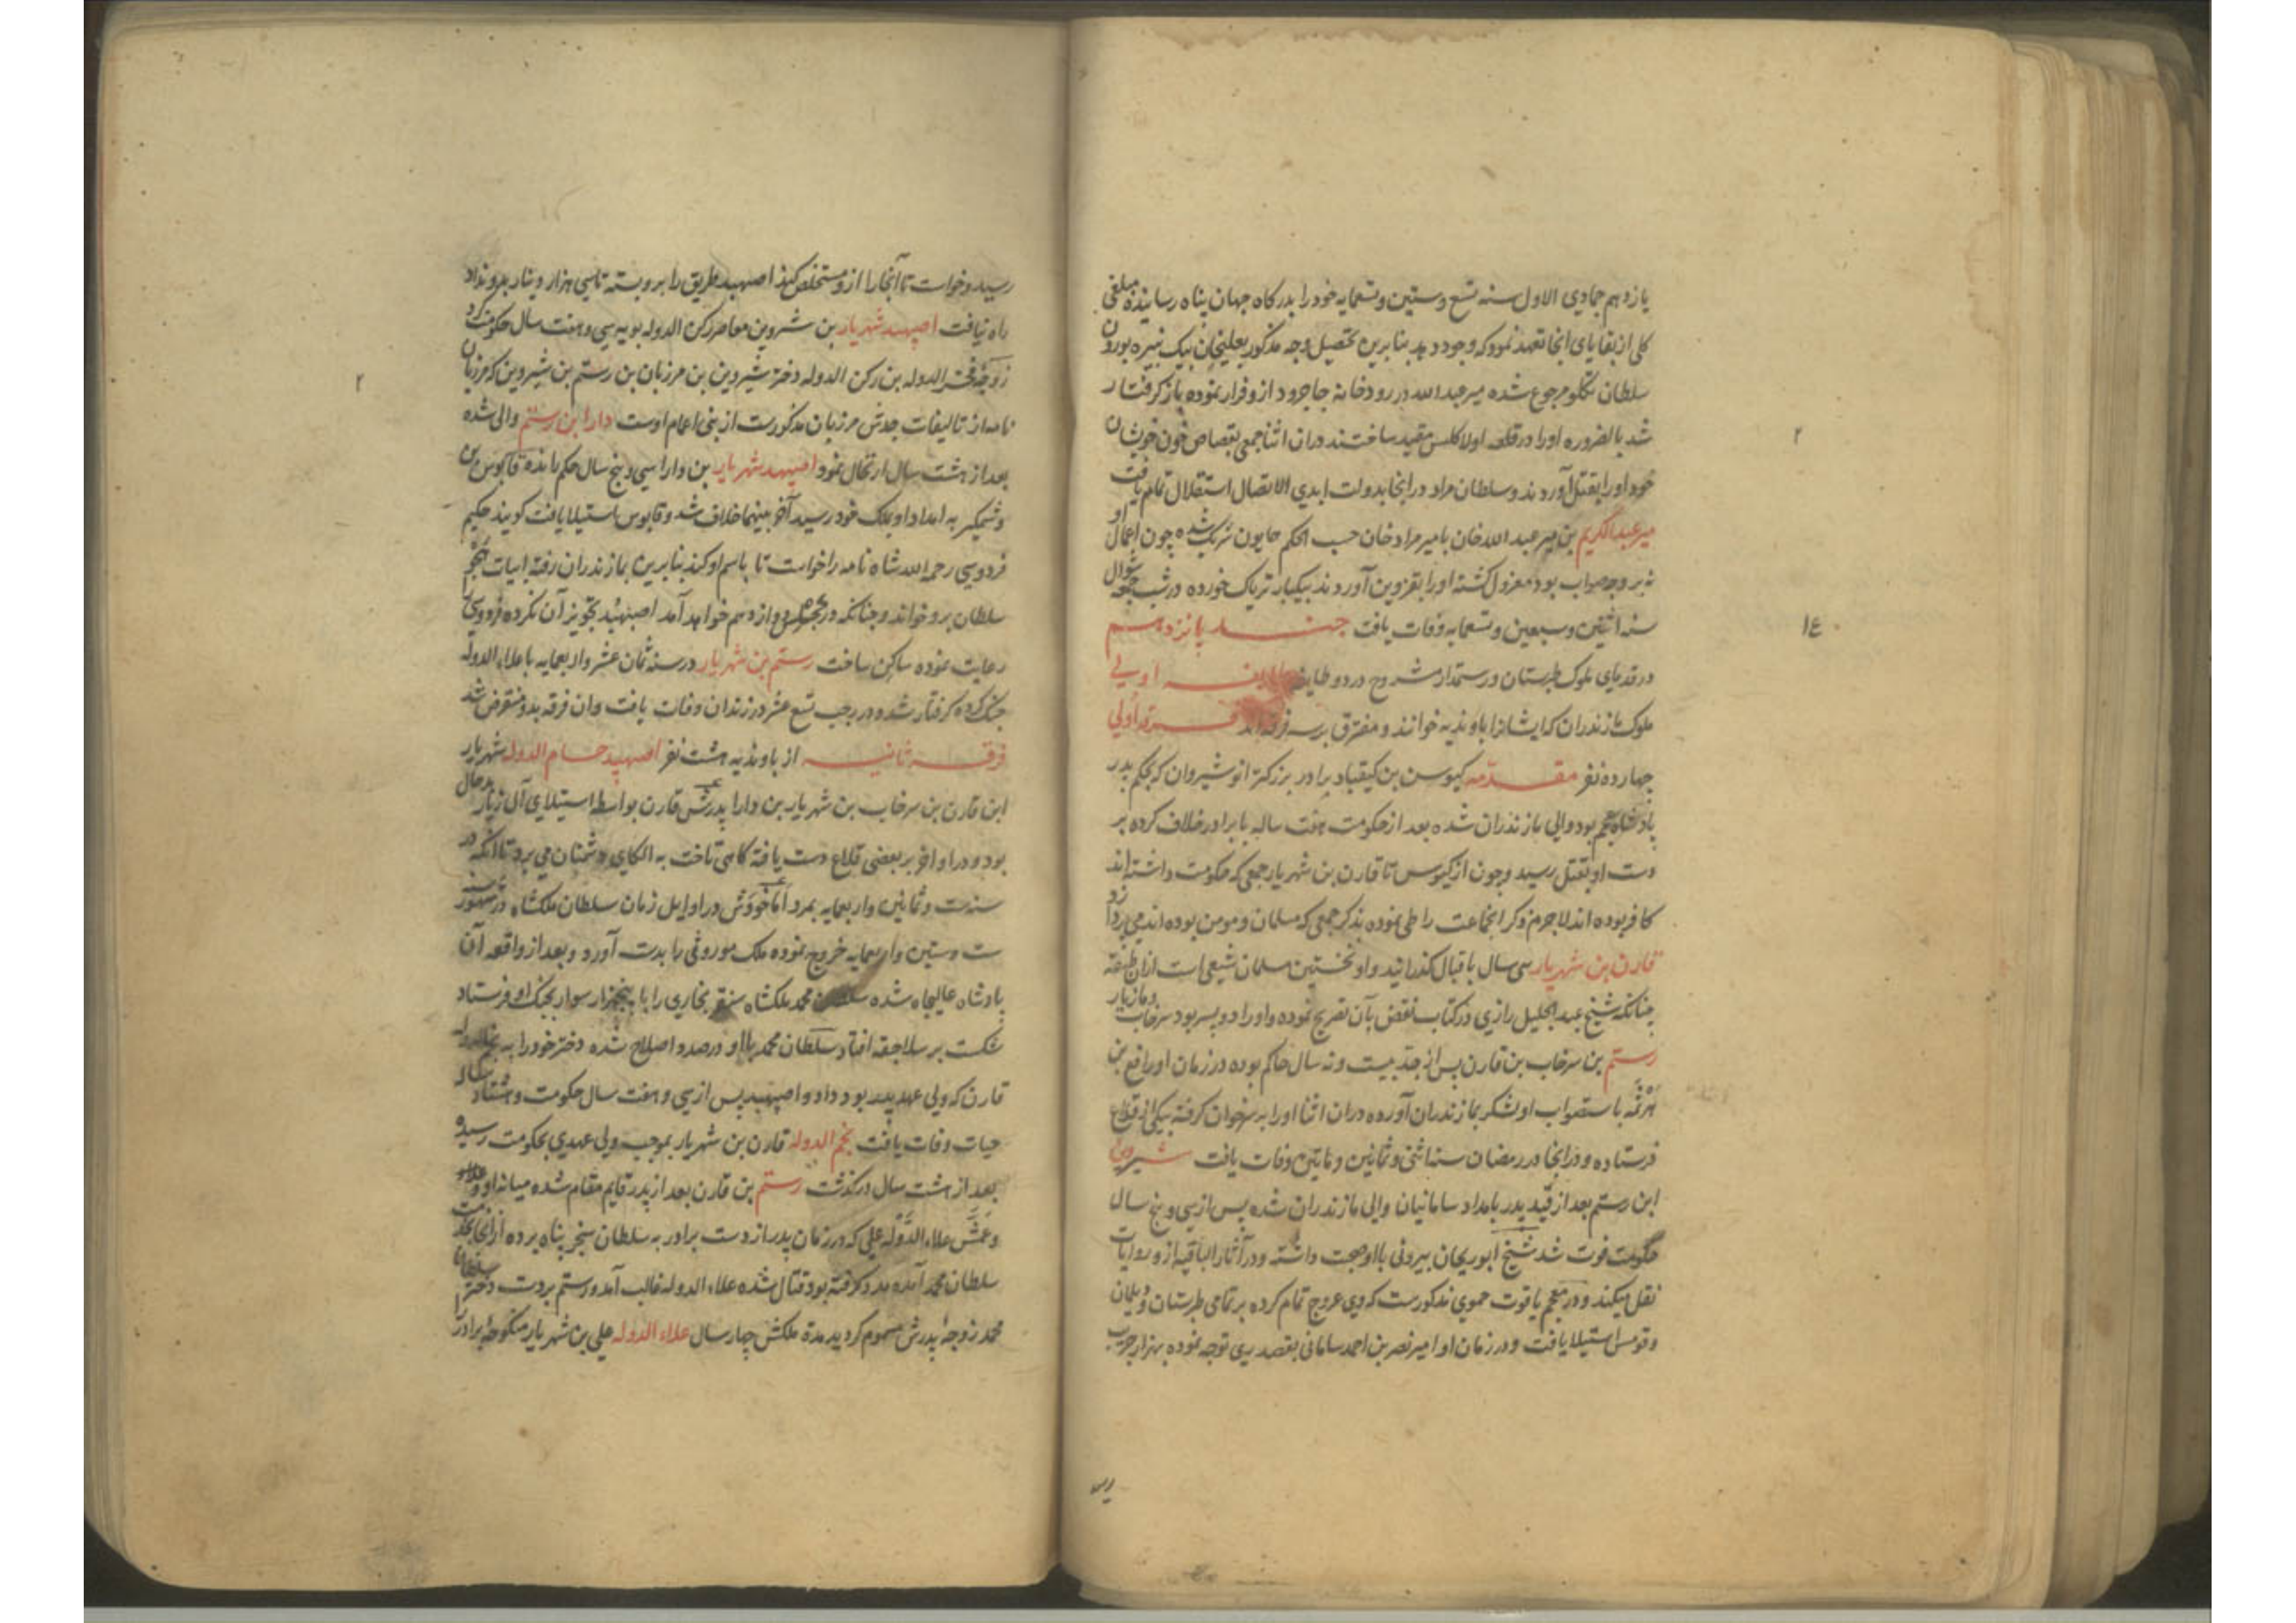 یازدهم جمادی الاول سنه تسع وستین وتسعمایه خود را بدرکاه جهان پناه رسانیده مبلغی
کلی از بقایای انجا تعهد نمود که وجود دهد بنابرین تحصیل وجه مذکور بعلیخان بیک نبیره بورون
سلطان تکلو مرجوع شده میر عبدالله در رودخانه جاجرود ازو فرار نموده باز کرفتار
شد بالضروره اورا در قلعه اولاکلس مقید ساختند دران اثنا جمعی بقصاص خون خویشان
خود اورا بقتل آوردند وسلطان مراد درانجا بدولت ابدی الاتصال استقلال تمام یافت
میر عبدالکریم بن میر عبدالله خان بامیر مراد خان حسب الحکم همایون شریک شده چون اعمال او
نه بر وجه صواب بود معزول کشته اورا بقزوین آوردند بیکبار تریاک خورده در شب جمعه شوال
سنه اثنتین وسبعین وتسعمایه وفات یافت جنـــد پانزدهـــم
در قدمای ملوک طبرستان ورستمدار مشروح در دو طایفه طایفـــه اولی
ملوک مازندران که ایشانرا باوندیه خوانند ومفترق بر سه فرقه‌اند فـــرقه اولی
چهارده نفر مقـــدمه کیوس بن کیقباد برادر بزرکتر انوشیروان که بحکم پدر
پادشاه عجم بود والی مازندران شده بعد از حکومت هفت ساله با برادر خلاف کرده بر
دست او بقتل رسید وچون از کیوس تا قارن بن شهریار جمعی که حکومت داشته‌اند
کافر بوده‌اند لاجرم ذکر انجماعت را طی نموده بذکر جمعی که مسلمان ومومن بوده‌اند می‌پردازد
قارن بن شهریار سی سال باقبال کذرانید واو نخستین مسلمان شیعی است ازان طبقه
چنانکه شیخ عبدالجلیل رازی در کتاب نقض بآن تصریح نموده واورا دو پسر بود سرخاب ومازیار
رستم بن سرخاب بن قارن پس از جد بیست ونه سال حاکم بوده در زمان او رافع بن
هرثمه باستصواب او لشکر بمازندران آورده دران اثنا اورا بر سر خوان کرفته بیکی از قلاع
فرستاده ودرانجا در رمضان سنه اثنی وثمانین وماتین وفات یافت شـــیروین
ابن رستم بعد از قید پدر بامداد سامانیان والی مازندران شده پس از سی وپنج سال
حکومت فوت شد شیخ ابوریحان بیرونی بااو صحبت داشته ودر آثار الباقیه ازو روایات
نقل میکند ودر معجم یاقوت حموی مذکورست که وی عروج تمام کرده بر تمامی طبرستان ودیلمان
وقومس استیلا یافت ودر زمان او امیر نصر بن احمد سامانی بقصد ری توجه نموده بهزار جریب
رسید وخواست تا آنجا را ازو مستخلص کند اصبهبد طریق را برو بسته تا سی هزار دینار بدو نداد
راه نیافت اصبهبد شهریار بن شروین معاصر رکن الدوله بویه سی وهفت سال حکومت کرد
زوجه فخر الدوله بن رکن الدوله دختر شیروین بن مرزبان بن رستم بن شیروین که مرزبان
نامه از تالیفات جدش مرزبان مذکورست از بنی اعمام اوست دارا ابن رستم والی شده
بعد از هشت سال ارتحال نمود اصبهبد شهریار بن دارا سی وپنج سال حکم رانده قابوس بن
وشمکیر به امداد او بملک خود رسید آخر بینهما خلاف شد وقابوس استیلا یافت کویند حکیم
فردوسی رحمه الله شاه نامه را خواست تا باسم او کند بنابرین بمازندران رفته ابیات هجو
سلطان برو خواند وچنانکه در مجلس دوازدهم خواهد آمد اصبهبد تجویز آن نکرده فردوسی را
رعایت نموده ساکن ساخت رستم بن شهریار در سنه ثمان عشر واربعمایه با علاء الدوله
جنک کرده کرفتار شد ودر رجب تسع عشر در زندان وفات یافت وان فرقه بدو منقرض شد
فرقـــه ثانیـــه از باوندیه هشت نفر اصبهبد حسام الدوله شهریار
ابن قارن بن سرخاب بن شهریار بن دارا پدرش قارن بواسطه استیلای آل زیار بدحال
بود ودر اواخر بر بعضی قلاع دست یافته کاهی تاخت به الکای دشمنان می‌برد تا آنکه در
سنه ست وثمانین واربعمایه بمرد اما خودش در اوایل زمان سلطان ملکشاه در سنه
ست وستین واربعمایه خروج نموده ملک موروثی را بدست آورد وبعد از واقعه آن
پادشاه عالیجاه شده سلطان محمد ملکشاه سنقر بخاری را با پنجهزار سوار بجنک او فرستاد
شکست بر سلاجقه افتاد سلطان محمد بااو در صدد اصلاح شده دختر خود را به نجم الدوله
قارن که ولی عهد پدر بود داد واصبهبد پس از سی وهفت سال حکومت وهشتاد ساله
حیات وفات یافت نجم الدوله قارن بن شهریار بموجب ولی عهدی بحکومت رسیده
بعد از هشت سال درکذشت رستم بن قارن بعد از پدر قایم مقام شده میانه او و
وعمش علاء الدوله علی که در زمان پدر از دست برادر به سلطان سنجر پناه برده
سلطان محمد آمده مدد کرفته بود قتال شده علاء الدوله غالب آمد ورستم بر دست دختر سلطان
محمد زوجه پدرش مسموم کردید مدة ملکش چهار سال علاء الدوله علی بن شهریار منکوحه برادر را